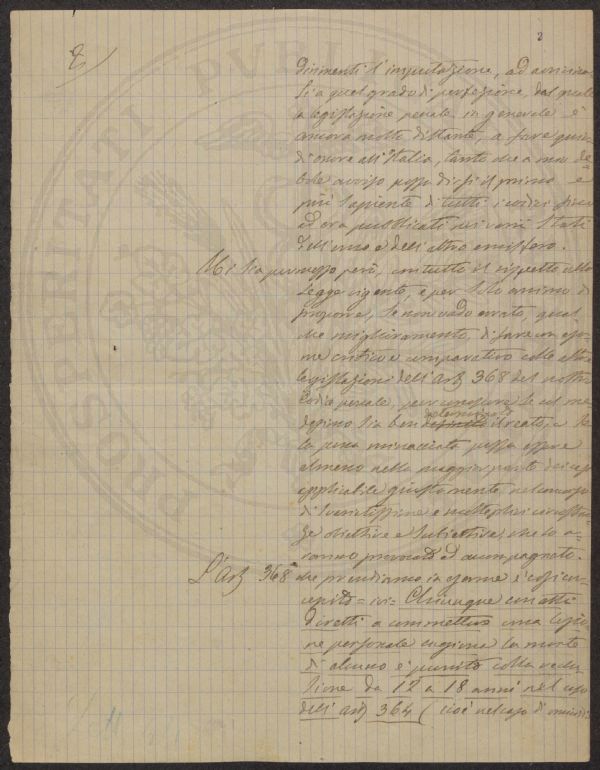 2
2
dirimenti l'imputazione, ad avvicinar
si a quel grado di perfezione, dal quale
la legislazione penale in generale è
ancora molto distante, a fare quin
di onore all'Italia, tanto che a mio de
bole avviso possa dirsi il primo e
più sapiente di tutti i codici fino
ad ora pubblicati nei varii Stati
dell'uno e dell'altro emisfero.
Mi sia permesso però, con tutto il rispetto alla
legge vigente, e per solo animo di
proporre, se non vado errato, qual
che miglioramento, di fare un esa
me critico e comparativo colle altre
legislazioni dell'art 368 del nostro
Codice penale per conoscere se col me
desimo sia ben determinato il reato, e se
la pena minacciata possa essere
almeno nella maggior parte dei casi
applicabile giustamente nel concorso
di svariatissime e molteplici circostan
ze obiettive e subiettive, che lo a
vranno provocato ed accompagnato.
L'art 368 che prendiamo in esame è così con
cepito = ivi = Chiunque con atti
diretti a commettere una lesio
ne personale cagiona la morte
di alcuno è punito colla reclu
sione da 12 a 18 anni nel caso
dell'art 364 (cioè nel caso di omicidi